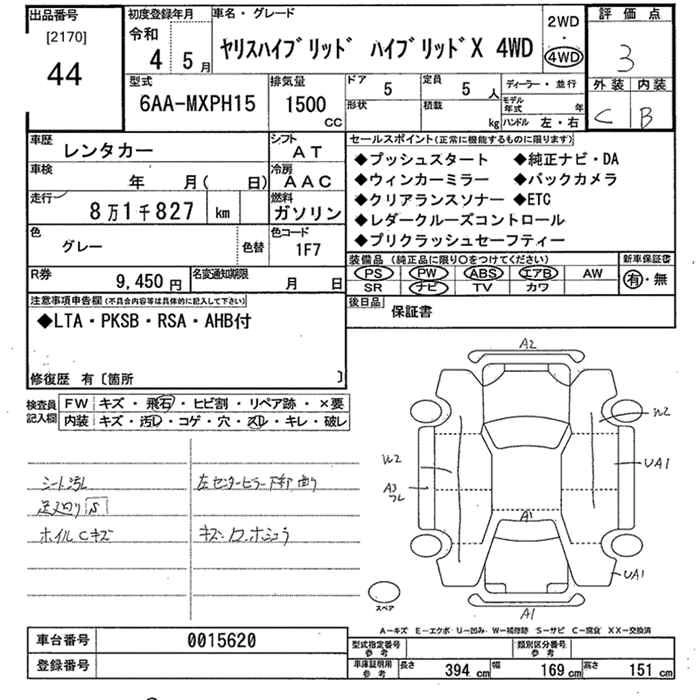 出品番号
[2170]
44
初度登録年月
令和
4 5月
車名・グレード
ヤリスハイブリッド ハイブリッドX 4WD
2WD
・
4WD
評価点
3
外装 内装
C B
型式
6AA-MXPH15
排気量
1500
CC
ドア
5
定員
5 人
形状
積載
kg
ディーラー・並行
モデル年式
年
ハンドル 左・右
車歴
レンタカー
シフト
AT
車検
年 月( 日)
冷房
AAC
走行
8万1千827 km
燃料
ガソリン
色
グレー
色替
色コード
1F7
R券
9,450 円
名変通知期限
月 日
セールスポイント(正常に機能するものに限ります)
◆プッシュスタート ◆純正ナビ・DA
◆ウィンカーミラー ◆バックカメラ
◆クリアランスソナー ◆ETC
◆レダークルーズコントロール
◆プリクラッシュセーフティー
装備品(純正品に限り○をつけてください)
PS PW ABS エアB AW
SR ナビ TV カワ
新車保証書
有・無
後日品
保証書
注意事項申告欄(不具合内容等は具体的に記入して下さい)
◆LTA・PKSB・RSA・AHB付
修復歴 有〔箇所 〕
検査員記入欄
FW キズ・飛石・ヒビ割・リペア跡・×要
内装 キズ・汚レ・コゲ・穴・スレ・キレ・破レ
シート汚レ
足廻り S
ホイルCキズ
左センターピラー下部曲り
A2
W2
W2
A3
UA1
A1
UA1
A1
スペア
A−キズ E−エクボ・U−凹み・W−補修跡 S−サビ C−腐食 XX−交換済
車台番号
0015620
登録番号
型式指定番号
参考
類別区分番号
参考
車庫証明用
参考
長さ 394 cm 幅 169 cm 高さ 151 cm